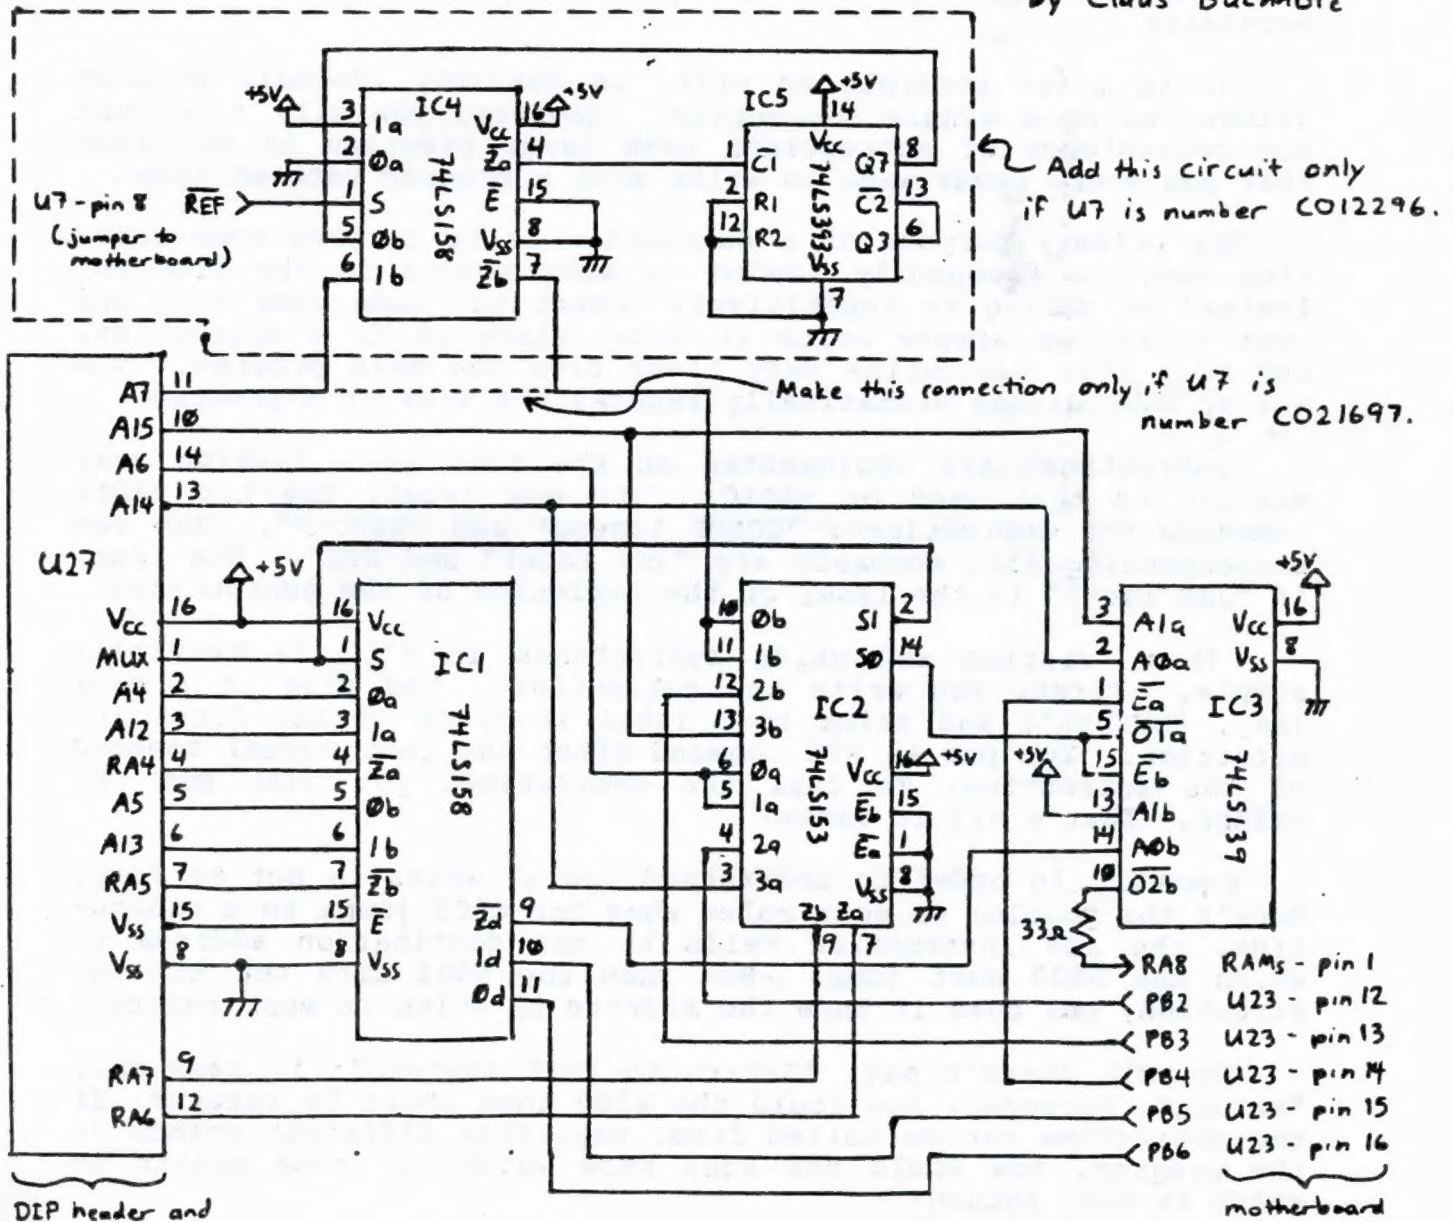 by Claus Buchholz
+5V
3
1a
2
Øa
U7-pin 8 REF
1
S
(jumper to
motherboard)
5
Øb
6
1b
IC4
74LS158
16
Vcc
+5V
4
Za
15
E
8
Vss
7
Zb
IC5
+5V
14
Vcc
1
C1
2
R1
12
R2
74LS393
8
Q7
13
C2
6
Q3
Vss
7
Add this circuit only
if U7 is number CO12296.
Make this connection only if U7 is
number CO21697.
A7 11
A15 10
A6 14
A14 13
U27
+5V
Vcc 16
Mux 1
A4 2
A12 3
RA4 4
A5 5
A13 6
RA5 7
Vss 15
Vss 8
RA7 9
RA6 12
16 Vcc
1 S
2 Øa
3 1a
4 Za
5 Øb
6 1b
7 Zb
15 E
8 Vss
IC1
74LS158
Zd 9
1d 10
Ød 11
10 Øb
11 1b
12 2b
13 3b
6 Øa
5 1a
4 2a
3 3a
IC2
74LS153
S1 2
SØ 14
Vcc 16 +5V
Eb 15
Ea 1
Vss 8
Zb Za
9 7
3 A1a
2 AØa
1 Ea
5 O1a
15 Eb
+5V
13 A1b
14 AØb
10 O2b
IC3
74LS139
+5V
Vcc 16
Vss 8
33Ω
RA8 RAMs - pin 1
PB2 U23 - pin 12
PB3 U23 - pin 13
PB4 U23 - pin 14
PB5 U23 - pin 15
PB6 U23 - pin 16
DIP header and
motherboard